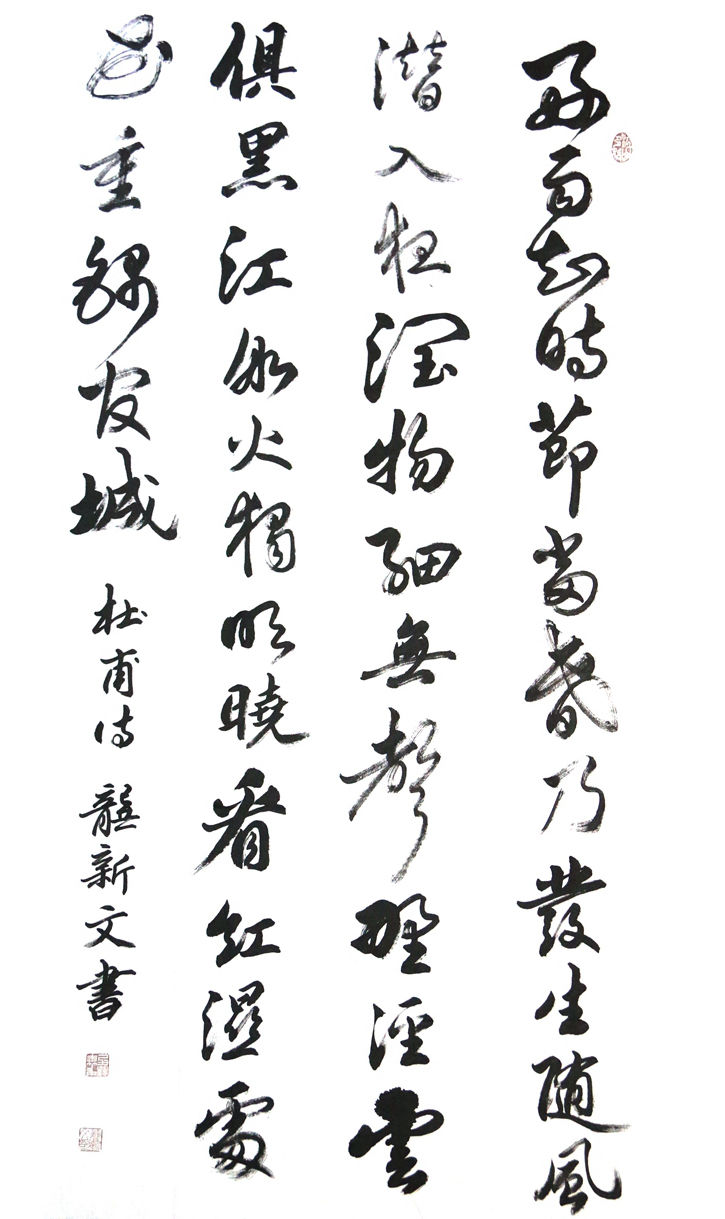 好雨知時節當春乃發生隨風
潛入夜潤物細無聲野徑雲
俱黑江船火獨明曉看紅濕處
花重錦官城 杜甫詩 龔新文書